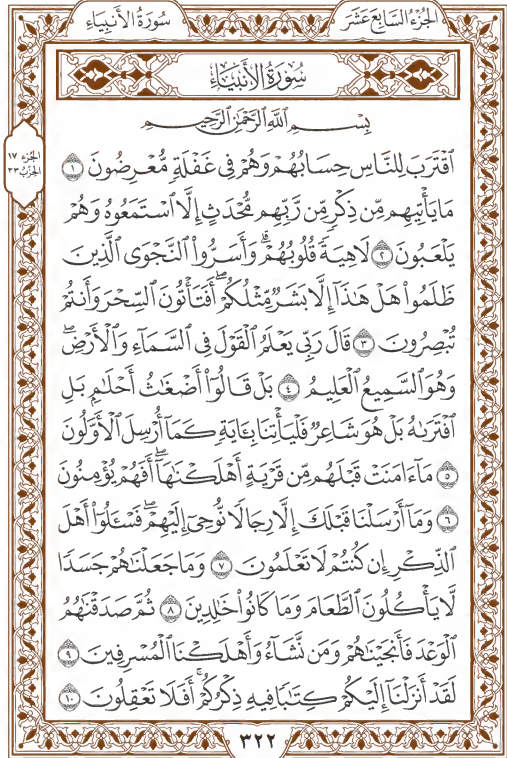 الجُزْءُ السَّابِعَ عَشَرَ
سُورَةُ الأَنبِيَاءِ
سُورَةُ الأَنبِيَاءِ
بِسْمِ ٱللَّهِ ٱلرَّحْمَٰنِ ٱلرَّحِيمِ
الجزء ١٧
ٱقْتَرَبَ لِلنَّاسِ حِسَابُهُمْ وَهُمْ فِى غَفْلَةٍ مُّعْرِضُونَ ١
الحزب ٣٣
مَا يَأْتِيهِم مِّن ذِكْرٍ مِّن رَّبِّهِم مُّحْدَثٍ إِلَّا ٱسْتَمَعُوهُ وَهُمْ
يَلْعَبُونَ ٢ لَاهِيَةً قُلُوبُهُمْ ۗ وَأَسَرُّوا۟ ٱلنَّجْوَى ٱلَّذِينَ
ظَلَمُوا۟ هَلْ هَٰذَآ إِلَّا بَشَرٌ مِّثْلُكُمْ ۖ أَفَتَأْتُونَ ٱلسِّحْرَ وَأَنتُمْ
تُبْصِرُونَ ٣ قَالَ رَبِّى يَعْلَمُ ٱلْقَوْلَ فِى ٱلسَّمَآءِ وَٱلْأَرْضِ ۖ
وَهُوَ ٱلسَّمِيعُ ٱلْعَلِيمُ ٤ بَلْ قَالُوٓا۟ أَضْغَٰثُ أَحْلَٰمٍۭ بَلِ
ٱفْتَرَىٰهُ بَلْ هُوَ شَاعِرٌ فَلْيَأْتِنَا بِـَٔايَةٍ كَمَآ أُرْسِلَ ٱلْأَوَّلُونَ
٥ مَآ ءَامَنَتْ قَبْلَهُم مِّن قَرْيَةٍ أَهْلَكْنَٰهَآ ۖ أَفَهُمْ يُؤْمِنُونَ
٦ وَمَآ أَرْسَلْنَا قَبْلَكَ إِلَّا رِجَالًا نُّوحِىٓ إِلَيْهِمْ ۖ فَسْـَٔلُوٓا۟ أَهْلَ
ٱلذِّكْرِ إِن كُنتُمْ لَا تَعْلَمُونَ ٧ وَمَا جَعَلْنَٰهُمْ جَسَدًا
لَّا يَأْكُلُونَ ٱلطَّعَامَ وَمَا كَانُوا۟ خَٰلِدِينَ ٨ ثُمَّ صَدَقْنَٰهُمُ
ٱلْوَعْدَ فَأَنجَيْنَٰهُمْ وَمَن نَّشَآءُ وَأَهْلَكْنَا ٱلْمُسْرِفِينَ ٩
لَقَدْ أَنزَلْنَآ إِلَيْكُمْ كِتَٰبًا فِيهِ ذِكْرُكُمْ ۖ أَفَلَا تَعْقِلُونَ ١٠
٣٢٢